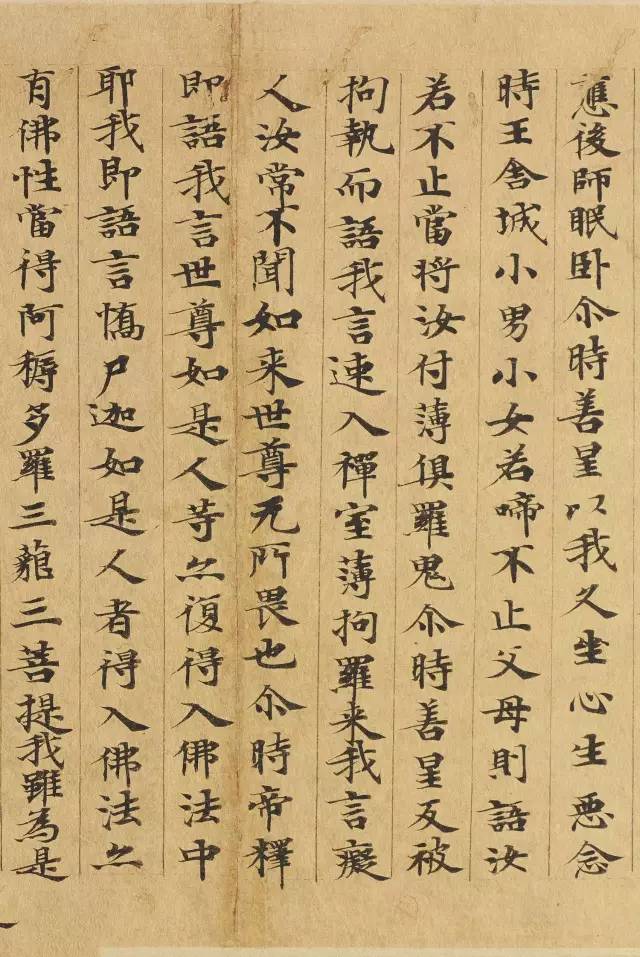 應後師眠卧尒時善星以我久坐心生惡念
時王舍城小男小女若啼不止父母則語汝
若不止當將汝付薄俱羅鬼尒時善星反被
拘執而語我言速入禪室薄拘羅来我言癡
人汝常不聞如来世尊无所畏也尒時帝釋
即語我言世尊如是人等亦復得入佛法中
耶我即語言憍尸迦如是人者得入佛法亦
有佛性當得阿耨多羅三藐三菩提我雖為是